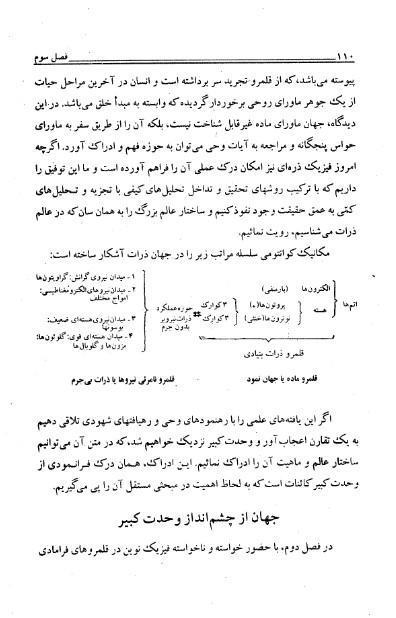 ۱۱۰
فصل سوم
پیوسته می‌باشد، که از قلمرو تجرید سر برداشته است و انسان در آخرین مراحل حیات
از یک جوهر ماورای روحی برخوردار گردیده که وابسته به مبدأ خلق می‌باشد. در این
دیدگاه، جهان ماورای ماده غیرقابل شناخت نیست، بلکه آن را از طریق سفر به ماورای
حواس پنجگانه و مراجعه به آیات وحی می‌توان به حوزه فهم و ادراک آورد. اگرچه
امروز فیزیک ذره‌ای نیز امکان درک عملی آن را فراهم آورده است و ما این توفیق را
داریم که با ترکیب روشهای تحقیق و تداخل تحلیل‌های کیفی با تجزیه و تحلیل‌های
کمّی به عمق حقیقت وجود نفوذ کنیم و ساختار عالم بزرگ را به همان سان که در عالم
ذرات می‌شناسیم، رویت نمائیم.
مکانیک کوانتومی سلسله مراتب زیر را در جهان ذرات آشکار ساخته است:
اتم‌ها
الکترون‌ها (بارمنفی)
هسته
پروتون‌ها(+)
نوترون‌ها(خنثی)
۳ کوارک
۳ کوارک
حوزه عملکرد
ذرات نیروبر
بدون جرم
۱ - میدان نیروی گرانش: گراویتون‌ها
۲ - میدان نیروهای الکترومغناطیسی:
امواج مختلف
۳ - میدان نیروی هسته‌ای ضعیف:
بوسونها
۴ - میدان هسته‌ای قوی: گلوئون‌ها؛
مزون‌ها و گلوبال‌ها
قلمرو ذرات بنیادی
قلمرو ماده یا جهان نمود
قلمرو نامرئی نیروها یا ذرات بی‌جرم
اگر این یافته‌های علمی را با رهنمودهای وحی و رهیافتهای شهودی تلاقی دهیم
به یک تقارن اعجاب آور و وحدت کبیر نزدیک خواهیم شد، که در متن آن می‌توانیم
ساختار عالم و ماهیت آن را ادراک نمائیم. این ادراک، همان درک فرانمودی از
وحدت کبیر کائنات است که به لحاظ اهمیت در مبحثی مستقل آن را پی می‌گیریم.
جهان از چشم‌انداز وحدت کبیر
در فصل دوم، با حضور خواسته و ناخواسته فیزیک نوین در قلمروهای فرامادی